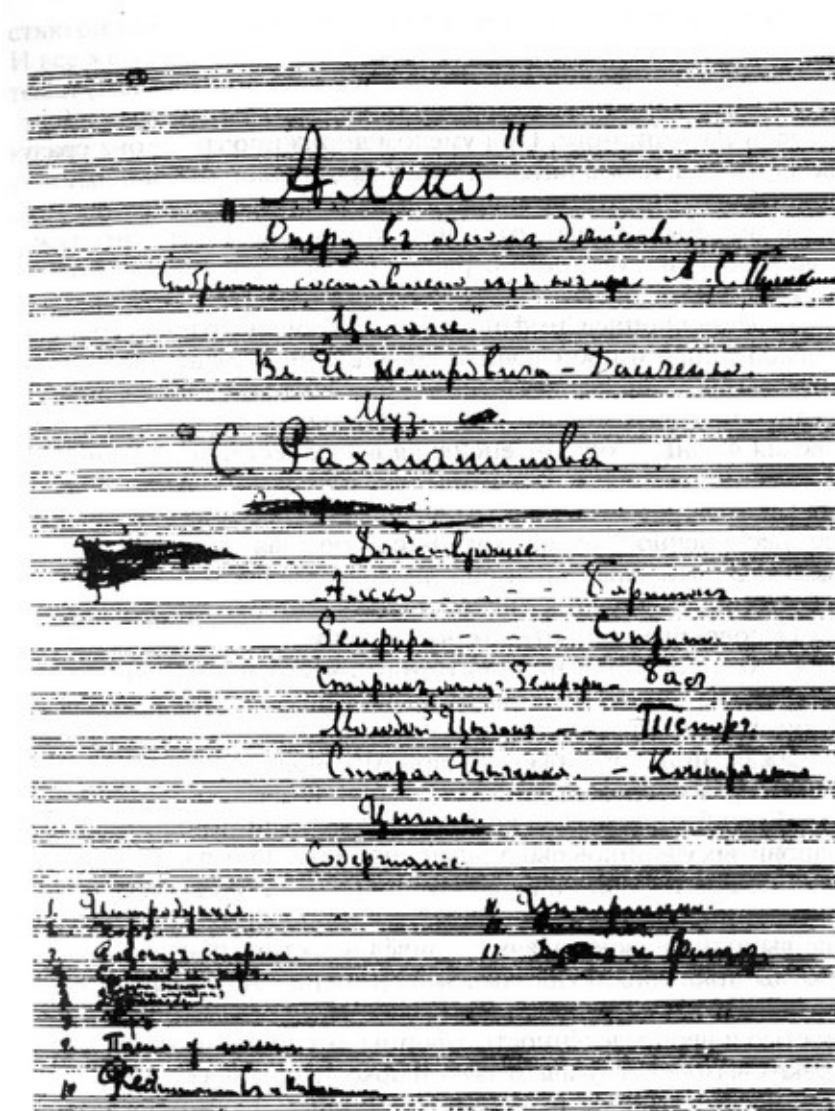 "Алеко."
Опера въ одномъ дѣйствіи.
Либретто составлено изъ поэмы А. С. Пушкина
"Цыгане."
Вл. И. Немировича-Данченко.
Муз.
С. Рахманинова.
Дѣйствующіе:
Алеко - - - Баритонъ
Земфира - - - Сопрано
Старикъ, отецъ Земфиры - Басъ
Молодой Цыганъ - - Теноръ.
Старая Цыганка. - Контральто
Цыгане.
Содержаніе.
1. Интродукція
2. Хоръ.
3. Разсказъ старика
9. Пѣсня у люльки.
10
11. Интермеццо.
12.